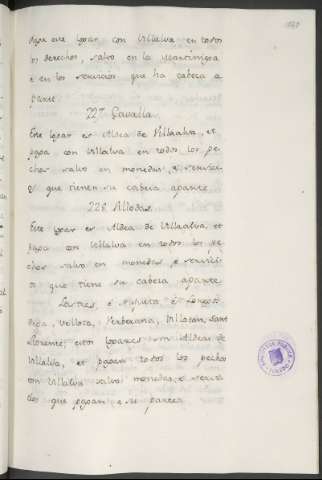 Paga este logar con Villalva en todos
los derechos, salvo en la martiniega
é en los servicios que ha cabeza a
parte
227 Lavalla
Este logar es Aldea de Villaalva, et
pagaa con Villalva en todos los pe
chos salvo en monedas, é servici
os que tienen su cabeza aparte
228 Villodas
Este logar es Aldea de Villaalva, et
paga con Villalva en todos los pe
chos salvo en monedas é servici
os que tiene su cabeza aparte
é é
Villota, Villacan, Sant
Llorente; estos logares son Aldeas de
Villalva, et pagan todos los pechos
con Villalva salvo monedas, é servi
cios que pagan é se parten